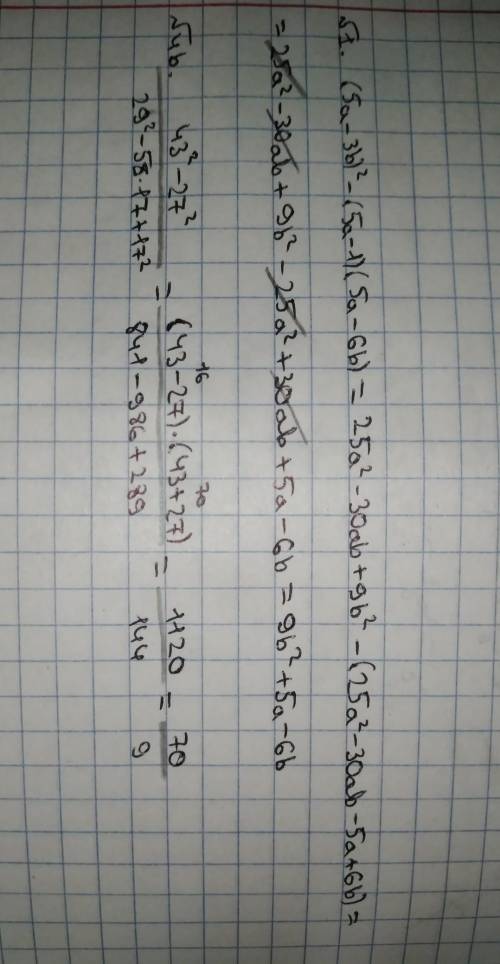 √1. (5a-3b)²-(5a-1)(5a-6b) = 25a²-30ab+9b²-(25a²-30ab-5a+6b) =
= 25a²-30ab+9b²-25a²+30ab+5a-6b = 9b²+5a-6b
√4b. (43²-27²)/(29²-58·17+17²) = ((43-27)·(43+27))/(841-986+289) = 1120/144 = 70/9
16 70